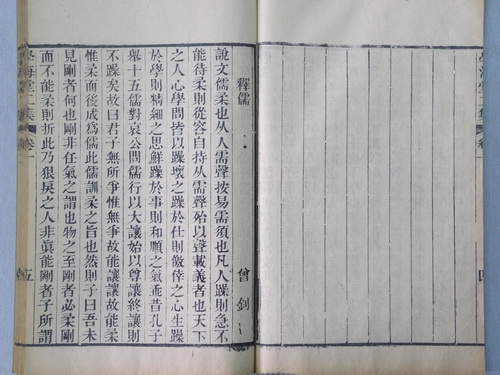 四
釋儒 曾釗
說文儒柔也从人需聲按易需須也凡人躁則急不
能待柔則從容自持从需聲始以聲載義者也天下
之人心學問皆以躁壞之躁於仕則僥倖之心生躁
於學則精細之思鮮躁於事則和順之氣乖昔孔子
舉十五儒對哀公問儒行以大讓始以尊讓終讓則
不躁矣故曰君子無所爭惟無爭故能讓讓故能柔
惟柔而後成爲儒此儒訓柔之旨也然則子曰吾未
見剛者何也剛非任氣之謂也物之至剛者必柔剛
而不能柔則折此乃狠戾之人非眞能剛者子所謂
學海堂二集 卷一 五